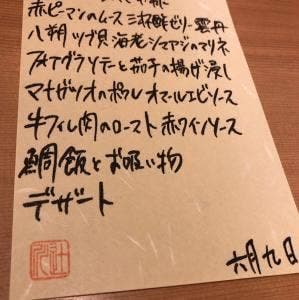 赤ピーマンのムース 三杯酢ゼリー 雲丹
八朔 ツブ貝 海老 シマアジのマリネ
フォアグラソテーと茄子の揚げ浸し
マナガツオのポワレ オマールエビソース
牛フィレ肉のロースト 赤ワインソース
鯛飯とお吸い物
デザート
六月九日